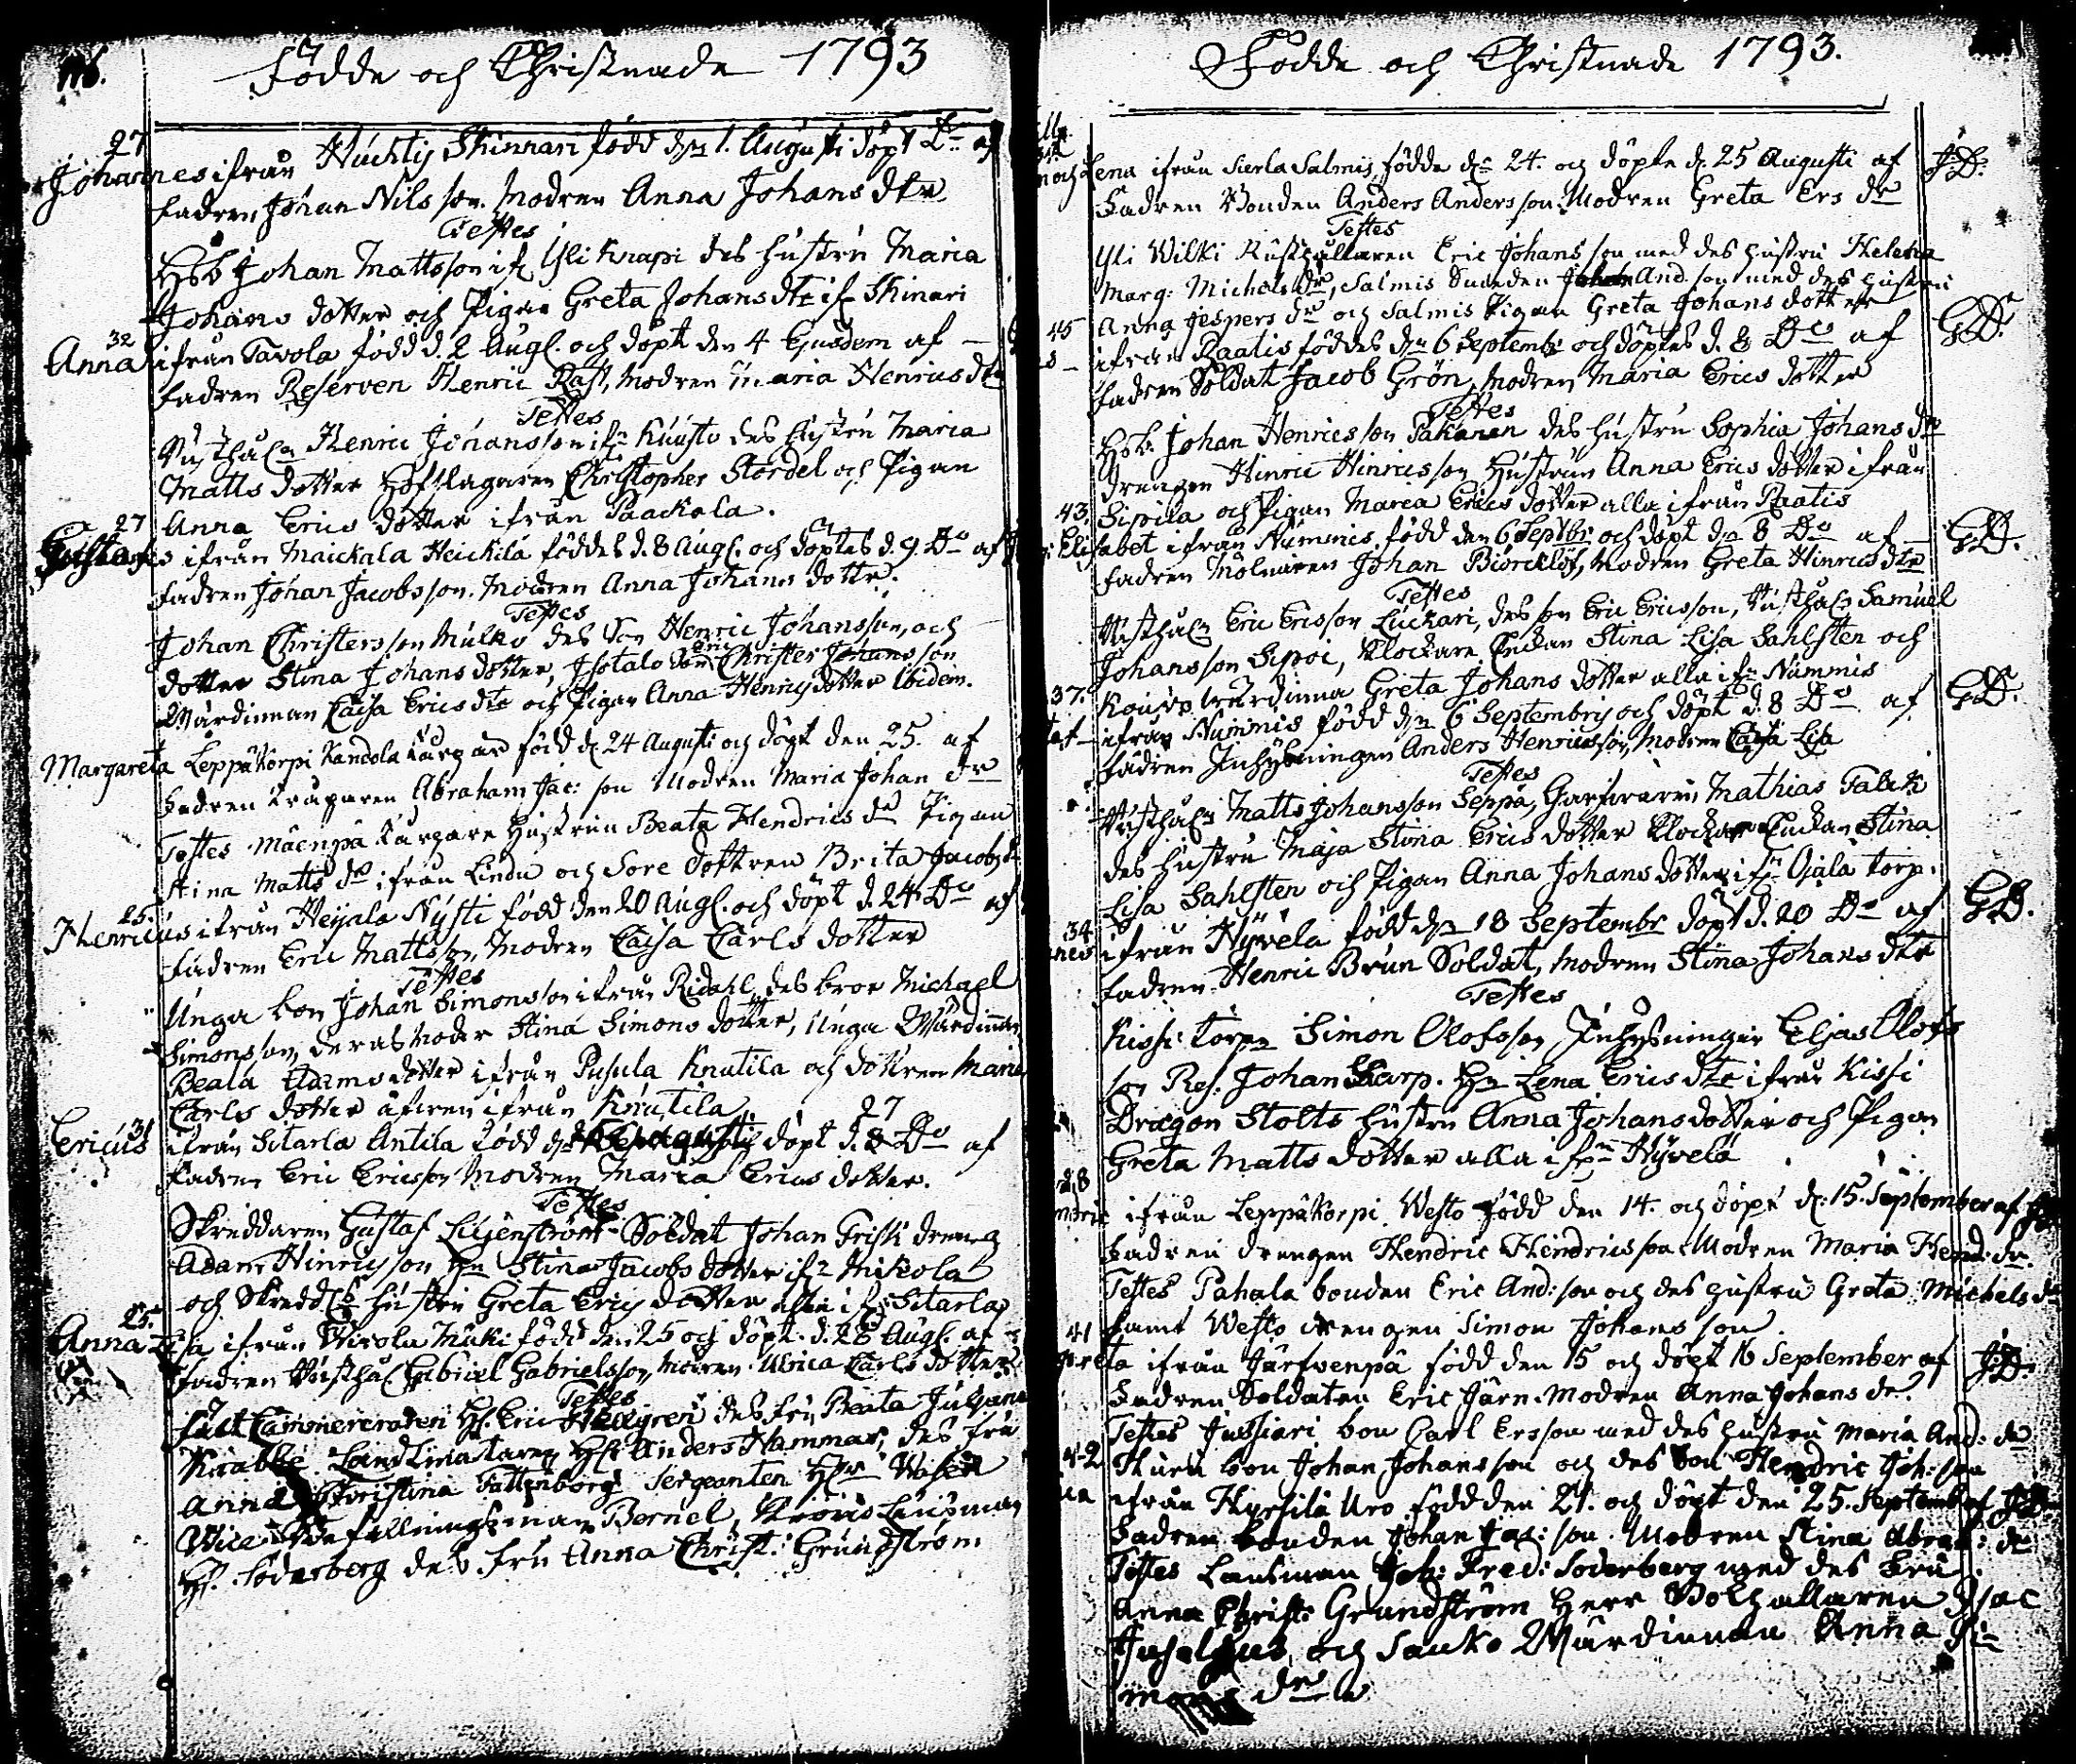 Födde och Christnade 1793
27
Johannes ifrån Huchtij Skinnari född den 1. Augusti döpt Do af
fadren Johan Nils son. Modren Anna Johans dtr
Testes
Johan Mattsson ifr Yli Knapi des hustru Maria
Johans dotter och Pigan Greta Johans dtr ifr Skinari
32
Anna ifrån Tavola född d. 2 Augl. och döpt den 4 Ejusdem af
fadren Reserven Henric Rast, modren Maria Henrics dtr
Testes
Henric Johansson ifn Kuusto des hustru Maria
Matts dotter Hofslagaren Christopher Stordel och Pigan
Anna Erics dotter ifrån Paackala.
27
Gustavus ifrån Maickala Heickilä föddes d. 8 Augl. och döptes d. 9. Do af
fadren Johan Jacobsson. Modren Anna Johans dotter.
Testes
Johan Christersson Mulko des Son Henric Johansson, och
dotter Stina Johans dotter, Isotalo Christer son
Wärdinnan Caisa Erics dtr och Pigan Anna Henrics dotter ibidem.
Margareta Leppäkorpi Kandola född d: 24 Augusti och döpt den 25. af
Fadren Abraham Jac: son Modren Maria Johan dr
Testes Mäenpä hustrun Beata Hendrics dr Pigan
Stina Matts dr ifrån Lindu och Sore Dottren Brita Jacobs dr
25.
Henricus ifrån Heijala Nysti född den 20 Augl. och döpt d. 24 Do af
fadren Eric Mattsson, Modren Caisa Carls dotter
Testes
Unga bon Johan Simonsson ifrån Ridahl, des bror Michael
Simonsson, deras moder Stina Simons dotter, Unga Wärdinnan
Beata Adams dotter ifrån Pusula Knutila och dottren Maria
Carls dotter äfven ifrån Knutila
31 27
Ericus ifrån Sitarla Antila född den Augusti döpt d. Do af
Fadren Eric Ericsson Modren Maria Erics dotter.
Testes
Skreddaren Gustaf Liljenström Soldat Johan Frisk dreng
Adam Hinricsson Hn Stina Jacobs dotter ifn Mikola
och Skredds hustru Greta Erics dotter alla ifn Sitarla
25.
Anna Lisa ifrån Wivola Mäki född den 25 och döpt d. 28 Augl. af
Fadren Gabriel Gabrielsson, modren Ulrica Carls dotter
Testes
Cammereraren Hr. Eric Hellgren des fru Beata Juliana
Krabbe Landtmätaren Hr Anders Hammar, des fru
Anna Christina Fattenborg Sergeanten Hr Wasen
Wice Befallningsman Bernel, Krono Länsman
Hr. Soderberg des fru Anna Christ: Grundström
Födde och Christnade 1793.
och Lena ifrån Sierla Salmis, födde dn 24. och döpte d: 25 Augusti af J:D:
Fadren Bonden Anders Andersson Modren Greta Ers dr
Testes
Yli Wilki Rusthållaren Eric Johans son med des hustru Helena
Marg: Michels dr, Salmis Bonden And. son med des hustru
Anna Jespers dr och Salmis Pigan Greta Johans dotter
45
ifrån Raatis föddes den 6 Septembr och döptes d. 8 Do af GD.
fadren Soldat Jacob Grön, Modren Maria Erics dotter
Testes
Johan Henricsson Pakanen des hustru Sophia Johans dr
drengen Hinric Hinricsson Hustrun Anna Erics dotter ifrån
Sipila och Pigan Maria Erics dotter alla ifrån Raatis
43.
Elisabet ifrån Nummis, född den 6 Septbr och döpt den 8 Do af GD.
fadren Molnaren Johan Biörcklöf, Modren Greta Hinrics dtr
Testes
Eric Ersson Luckari, des son Eric Ericsson, Samuel
Johansson Sipoi, Klockare Enckan Stina Lisa Sahlsten och
Kouvo Wärdinna Greta Johans dotter alla ifn Nummis
37.
ifrån Nummis född den 6 Septembris och döpt d. 8 Do. af GD.
fadren Inhysningen Anders Henricsson, Modren Caisa Lisa
Testes
Matts Johansson Seppä, Garfvaren Mathias Talek
des hustru Maja Stina Erics dotter Klockare Enckan Stina
Lisa Sahlsten och Pigan Anna Johans dotter ifn Ojala torp.
34
ifrån Hyvelä född den 18 Septembr döpt d. 20 Do af GD.
fadren Henric Brun Soldat, modren Stina Johans dtr
Testes
Kissi torpn Simon Olofsson Inhysningen Elias Olofs
son Res. Johan Harp. Hn Lena Erics dtr ifrån Kissi
Dragon Stolts hustru Anna Johans dotter och Pigan
Greta Matts dotter alla ifrn Hyvelä
28
ifrån Leppäkorpi Westo född den 14. och döpt d: 15. September af
Fadren drengen Hendric Hendricsson Modren Maria Hend: dr.
Testes Pahala bonden Eric And: son och des hustru Greta Michels dr
samt Westo drengen Simon Johans son.
41
Greta ifrån Järfvenpä född den 15 och döpt 16 September af J:D:
Fadren Soldaten Eric Järn. Modren Anna Johans dr.
Testes Jussiari bon Carl Ersson med des hustru Maria And: dr
Huru bon Johan Johansson och des Son Hendric Joh: son
42
ifrån Hyrsilä Uro född den 24. och döpt den 25. Septemb af
Fadren bonden Johan Jac: son. Modren Stina Abrah: dr
Testes Länsman Joh: Fred: Soderberg med des Fru
Anna Christ: Grundström Herr Bokhållaren Isac
och Sauko Wärdinnan Anna Si-
mons dr